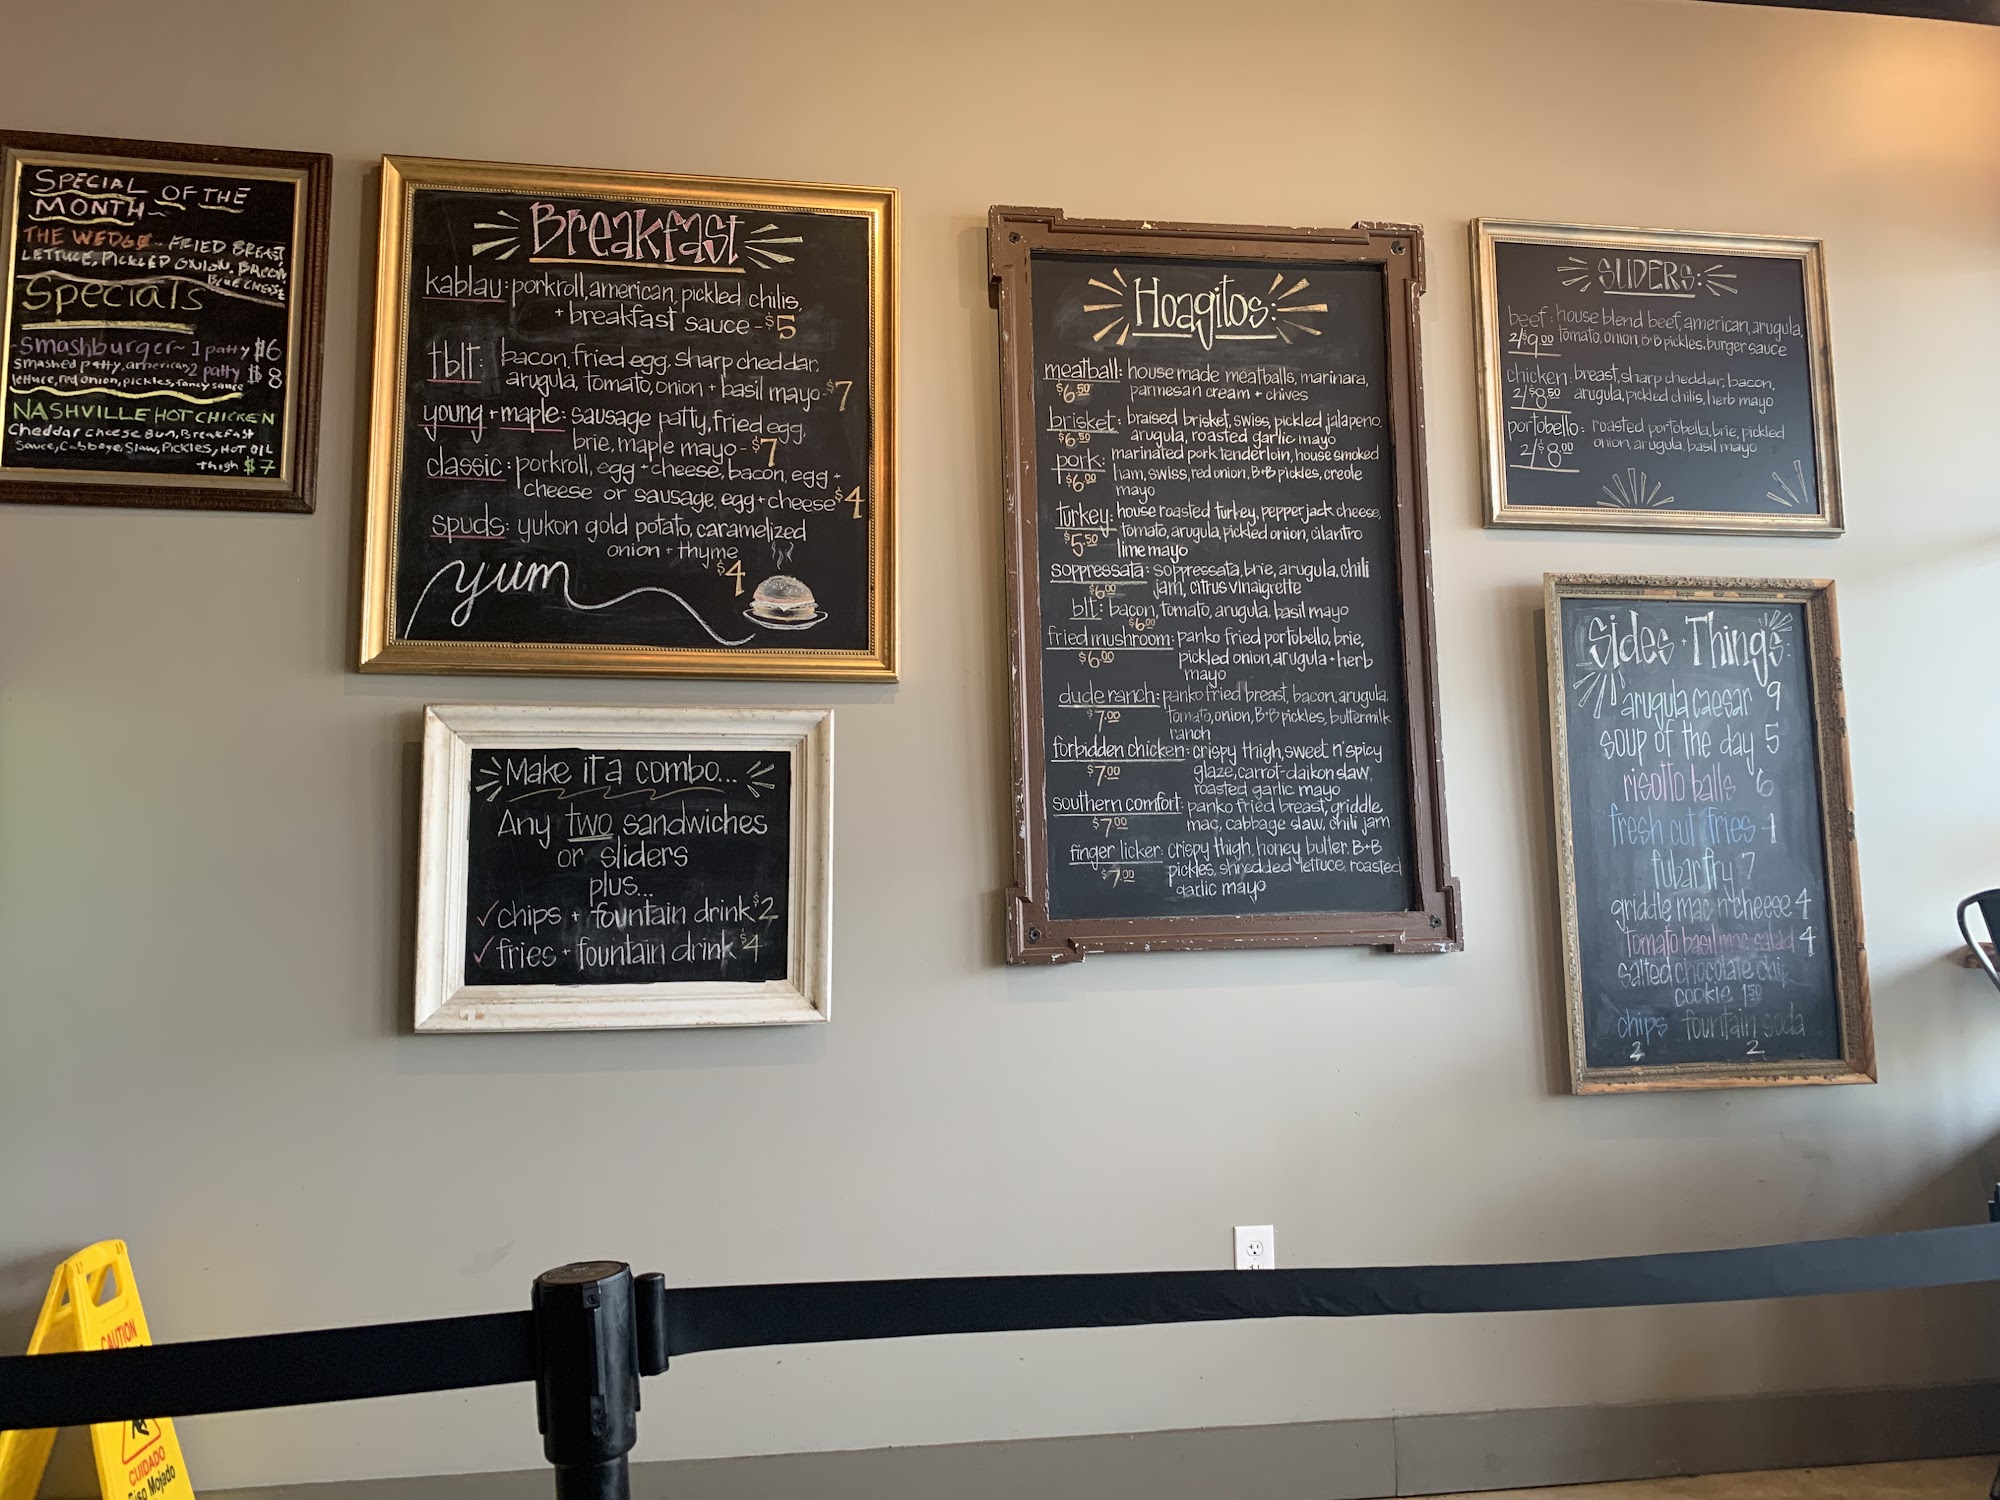 SPECIAL OF THE
MONTH~
THE WEDGE - FRIED BREAST
LETTUCE, PICKLED ONION, BACON
BLUE CHEESE
Specials
-smashburger~ 1 patty $6
smashed patty, american, 2 patty $8
lettuce, red onion, pickles, fancy sauce
NASHVILLE HOT CHICKEN
Cheddar Cheese Bun, Breakfast
Sauce, Cabbage Slaw, Pickles, HOT OIL
thigh $7
Breakfast
kablau: porkroll, american, pickled chilis,
+ breakfast sauce - $5
tblt: bacon, fried egg, sharp cheddar,
arugula, tomato, onion + basil mayo - $7
young + maple: sausage patty, fried egg,
brie, maple mayo - $7
classic: porkroll, egg + cheese, bacon, egg +
cheese or sausage, egg + cheese $4
spuds: yukon gold potato, caramelized
onion + thyme
$4
yum
Make it a combo...
Any two sandwiches
or sliders
plus...
✓ chips + fountain drink $2
✓ fries + fountain drink $4
Hoagitos:
meatball: house made meatballs, marinara,
$6.50 parmesan cream + chives
brisket: braised brisket, swiss, pickled jalapeno,
$6.50 arugula, roasted garlic mayo
pork: marinated pork tenderloin, house smoked
$6.00 ham, swiss, red onion, B+B pickles, creole
mayo
turkey: house roasted turkey, pepperjack cheese,
$5.50 tomato, arugula, pickled onion, cilantro
lime mayo
soppressata: soppressata, brie, arugula, chili
$6.00 jam, citrus vinaigrette
blt: bacon, tomato, arugula, basil mayo
$6.00
fried mushroom: panko fried portobello, brie,
$6.00 pickled onion, arugula + herb
mayo
dude ranch: panko fried breast, bacon, arugula,
$7.00 tomato, onion, B+B pickles, buttermilk
ranch
forbidden chicken: crispy thigh, sweet n' spicy
$7.00 glaze, carrot-daikon slaw,
roasted garlic mayo
southern comfort: panko fried breast, griddle
$7.00 mac, cabbage slaw, chili jam
finger licker: crispy thigh, honey butter, B+B
$7.00 pickles, shredded lettuce, roasted
garlic mayo
SLIDERS:
beef: house blend beef, american, arugula,
2/$9.00 tomato, onion, B+B pickles, burger sauce
chicken: breast, sharp cheddar, bacon,
2/$8.50 arugula, pickled chilis, herb mayo
portobello: roasted portobella, brie, pickled
2/$8.00 onion, arugula, basil mayo
Sides + Things:
arugula caesar 9
soup of the day 5
risotto balls 6
fresh cut fries 4
fubar fry 7
griddle mac n' cheese 4
tomato basil mac salad 4
salted chocolate chip
cookie 1.50
chips fountain soda
2 2
CAUTION
CUIDADO
Piso Mojado